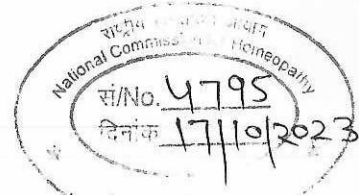 राष्ट्रीय आयोग
National Commission Homeopathy
सं/No. 4795
दिनांक 17/10/2023